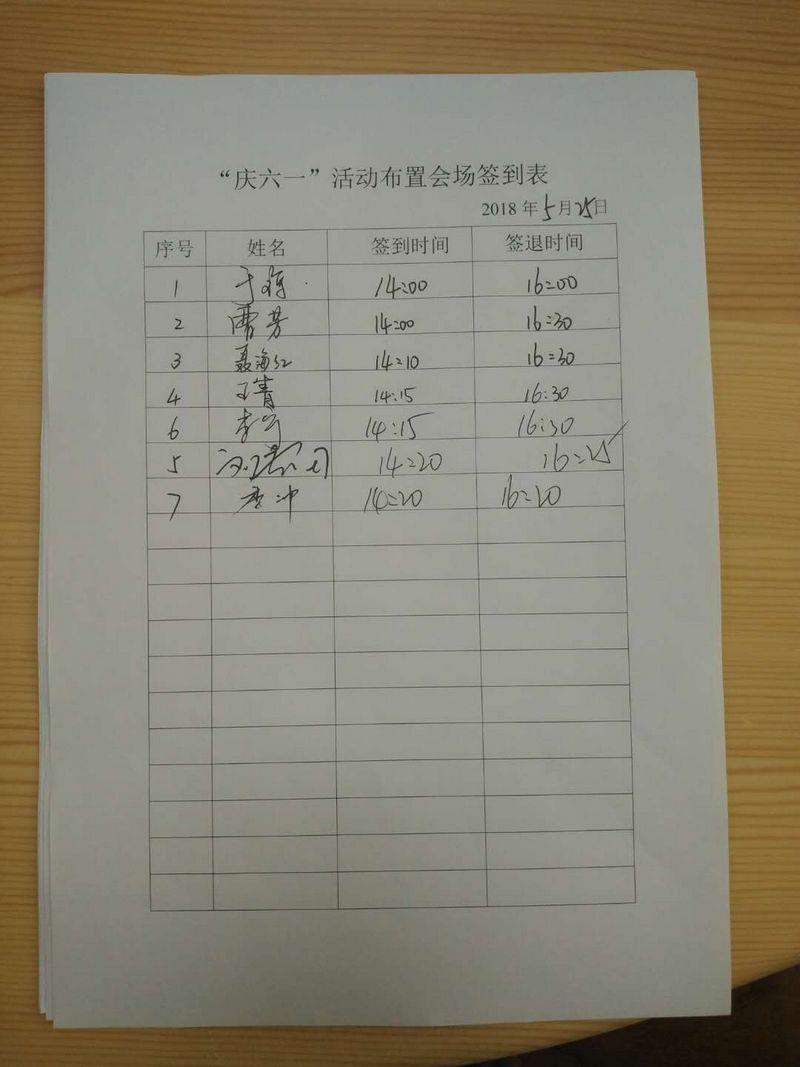 “庆六一”活动布置会场签到表
2018 年 5 月 25 日
序号 姓名 签到时间 签退时间
1 于 14:00 16:00
2 曹芳 14:00 16:30
3 聂海红 14:10 16:30
4 王青 14:15 16:30
6 李 14:15 16:30
5 14:20 16:25
7 李冲 14:20 16:20